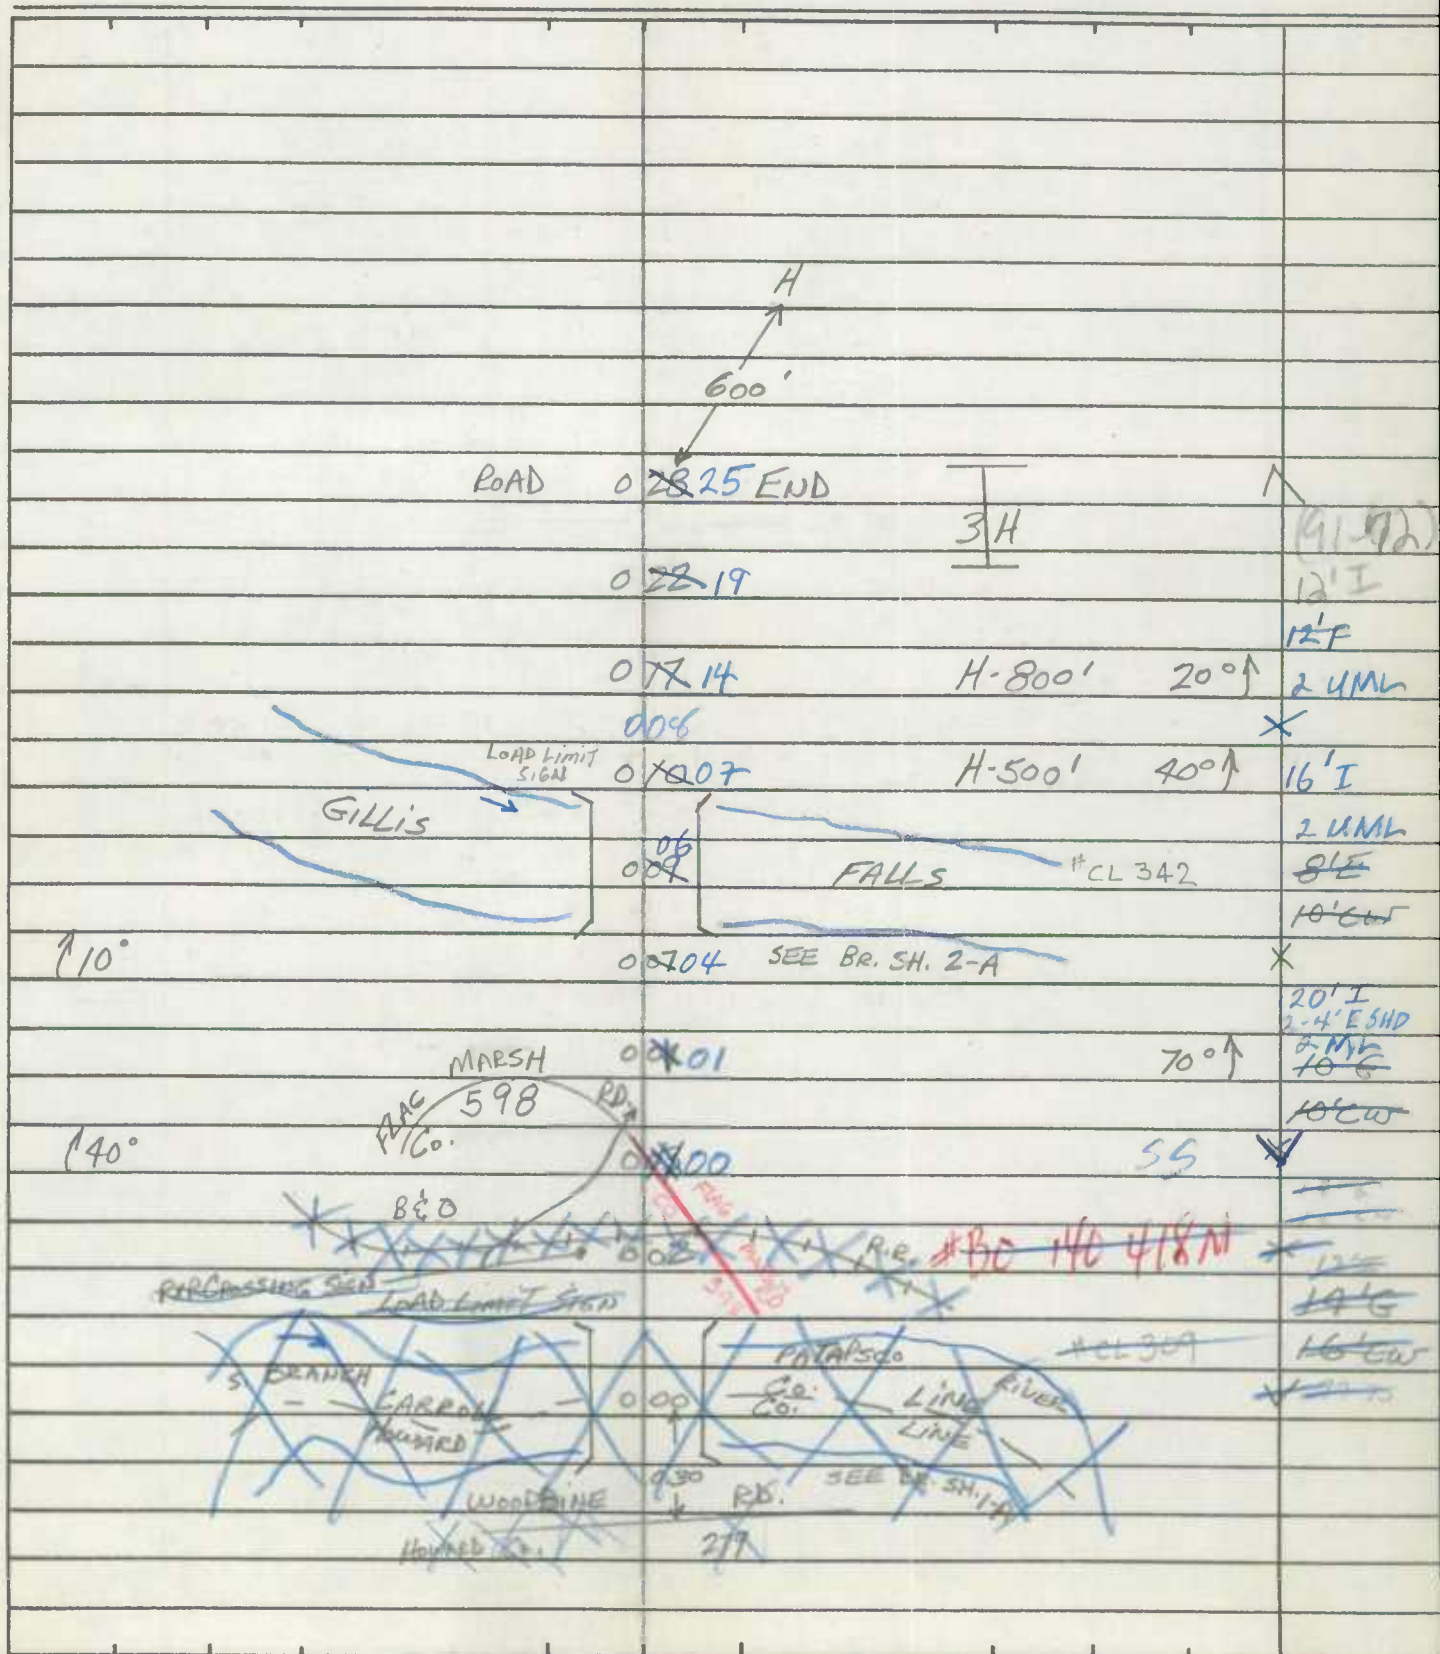 H
600'
ROAD 0 28 25 END
3 H
(91-92)
0 22 19
12' I
12' F
0 17 14 H-800' 20° 2 UML
0 08
LOAD LIMIT
SIGN
0 10 07 H-500' 40° 16' I
GILLIS
2 UML
06
0 09 FALLS #CL 342 8'E
10'EW
10° 0 07 04 SEE BR. SH. 2-A
20' I
2-4' E SHD
2-ML
MARSH 0 01 70° 10'G
FLAG 598 RD.
CO. 10'EW
40° 0 00 SS
B&O FLAG
CO. MARSH
RD
598
0 02 R.R. #BC 140 418 N
RR CROSSING SIGN
LOAD LIMIT SIGN
14'G
PATAPSCO #CL 309 16'EW
S BRANCH RIVER
CARROLL 0 00 CO. LINE
HOWARD CO. LINE
0.30 SEE BR. SH. 1-A
WOODBINE RD.
HOWARD CO. 277